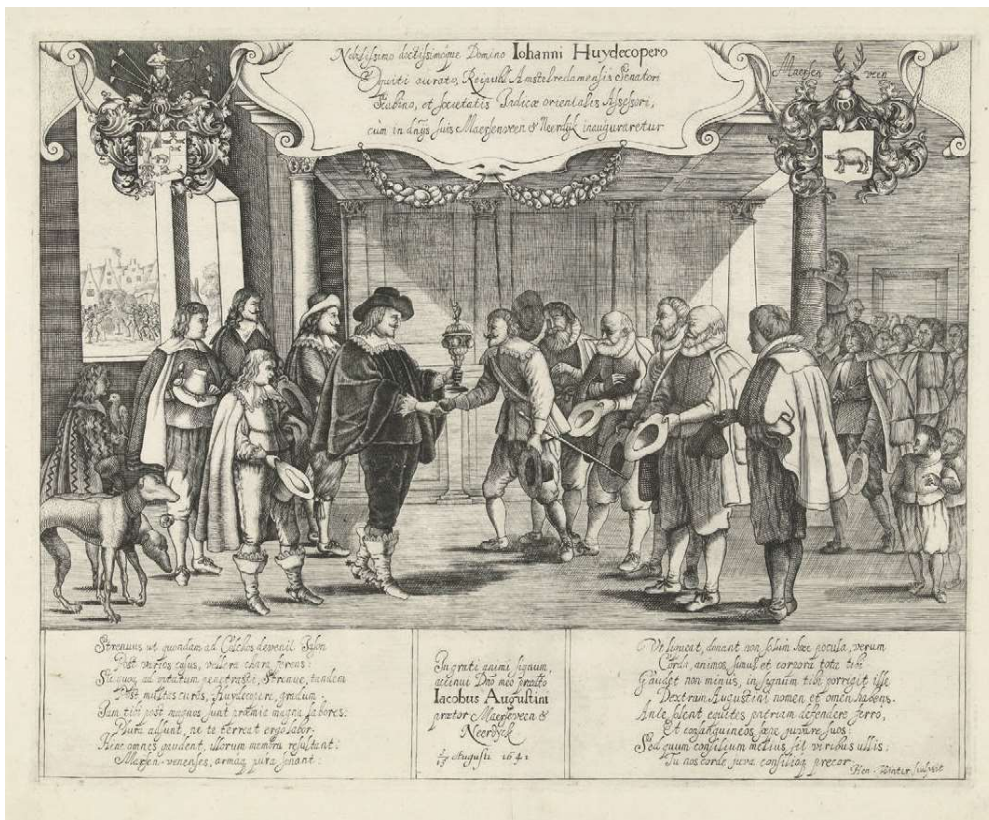 Nobilissimo doctissimoque Domino Iohanni Huydecopero
Equiti aurato, Reipubl Amstelredamensis Senatori
Scabino, et societatis Indicæ orientalis Assessori,
cùm in dnys suis Maersenveen & Neerdijk inauguraretur
Maersen veen
Strenuus ut quondam ad Colchos devenit Iason
Post varios casus, vellera chara ferens:
Sic quoq ad optatum penetraste, Strenue, tandem
Post multas curas, Huydecopere, gradum.
Iam tibi post magnos sunt præmia magna labores:
Dura adsunt, ne te terreat ergo labor.
Hinc omnes gaudent, illorum membra resultant:
Marsen-venenses, armaq pura sonant:
In grati animi signum,
accinui Dno meo
Iacobus Augustini
prætor Maerseveen &
Neerdyck
Augusti 1641
Ut liqueat, donant non solùm hæc pocula, verum
Corda, animos, simul et corpora tota tibi
Gaudet non minus, in signum tibi porrigit ille
Dextram Augustini nomen et omen habens.
Ante solent equites patriam defendere ferro,
Et consanguineos sæpe juvare suos:
Sed quum consilium melius sit viribus ullis:
Tu nos corde juva consilijq precor.
Hen. Winter sculpsit